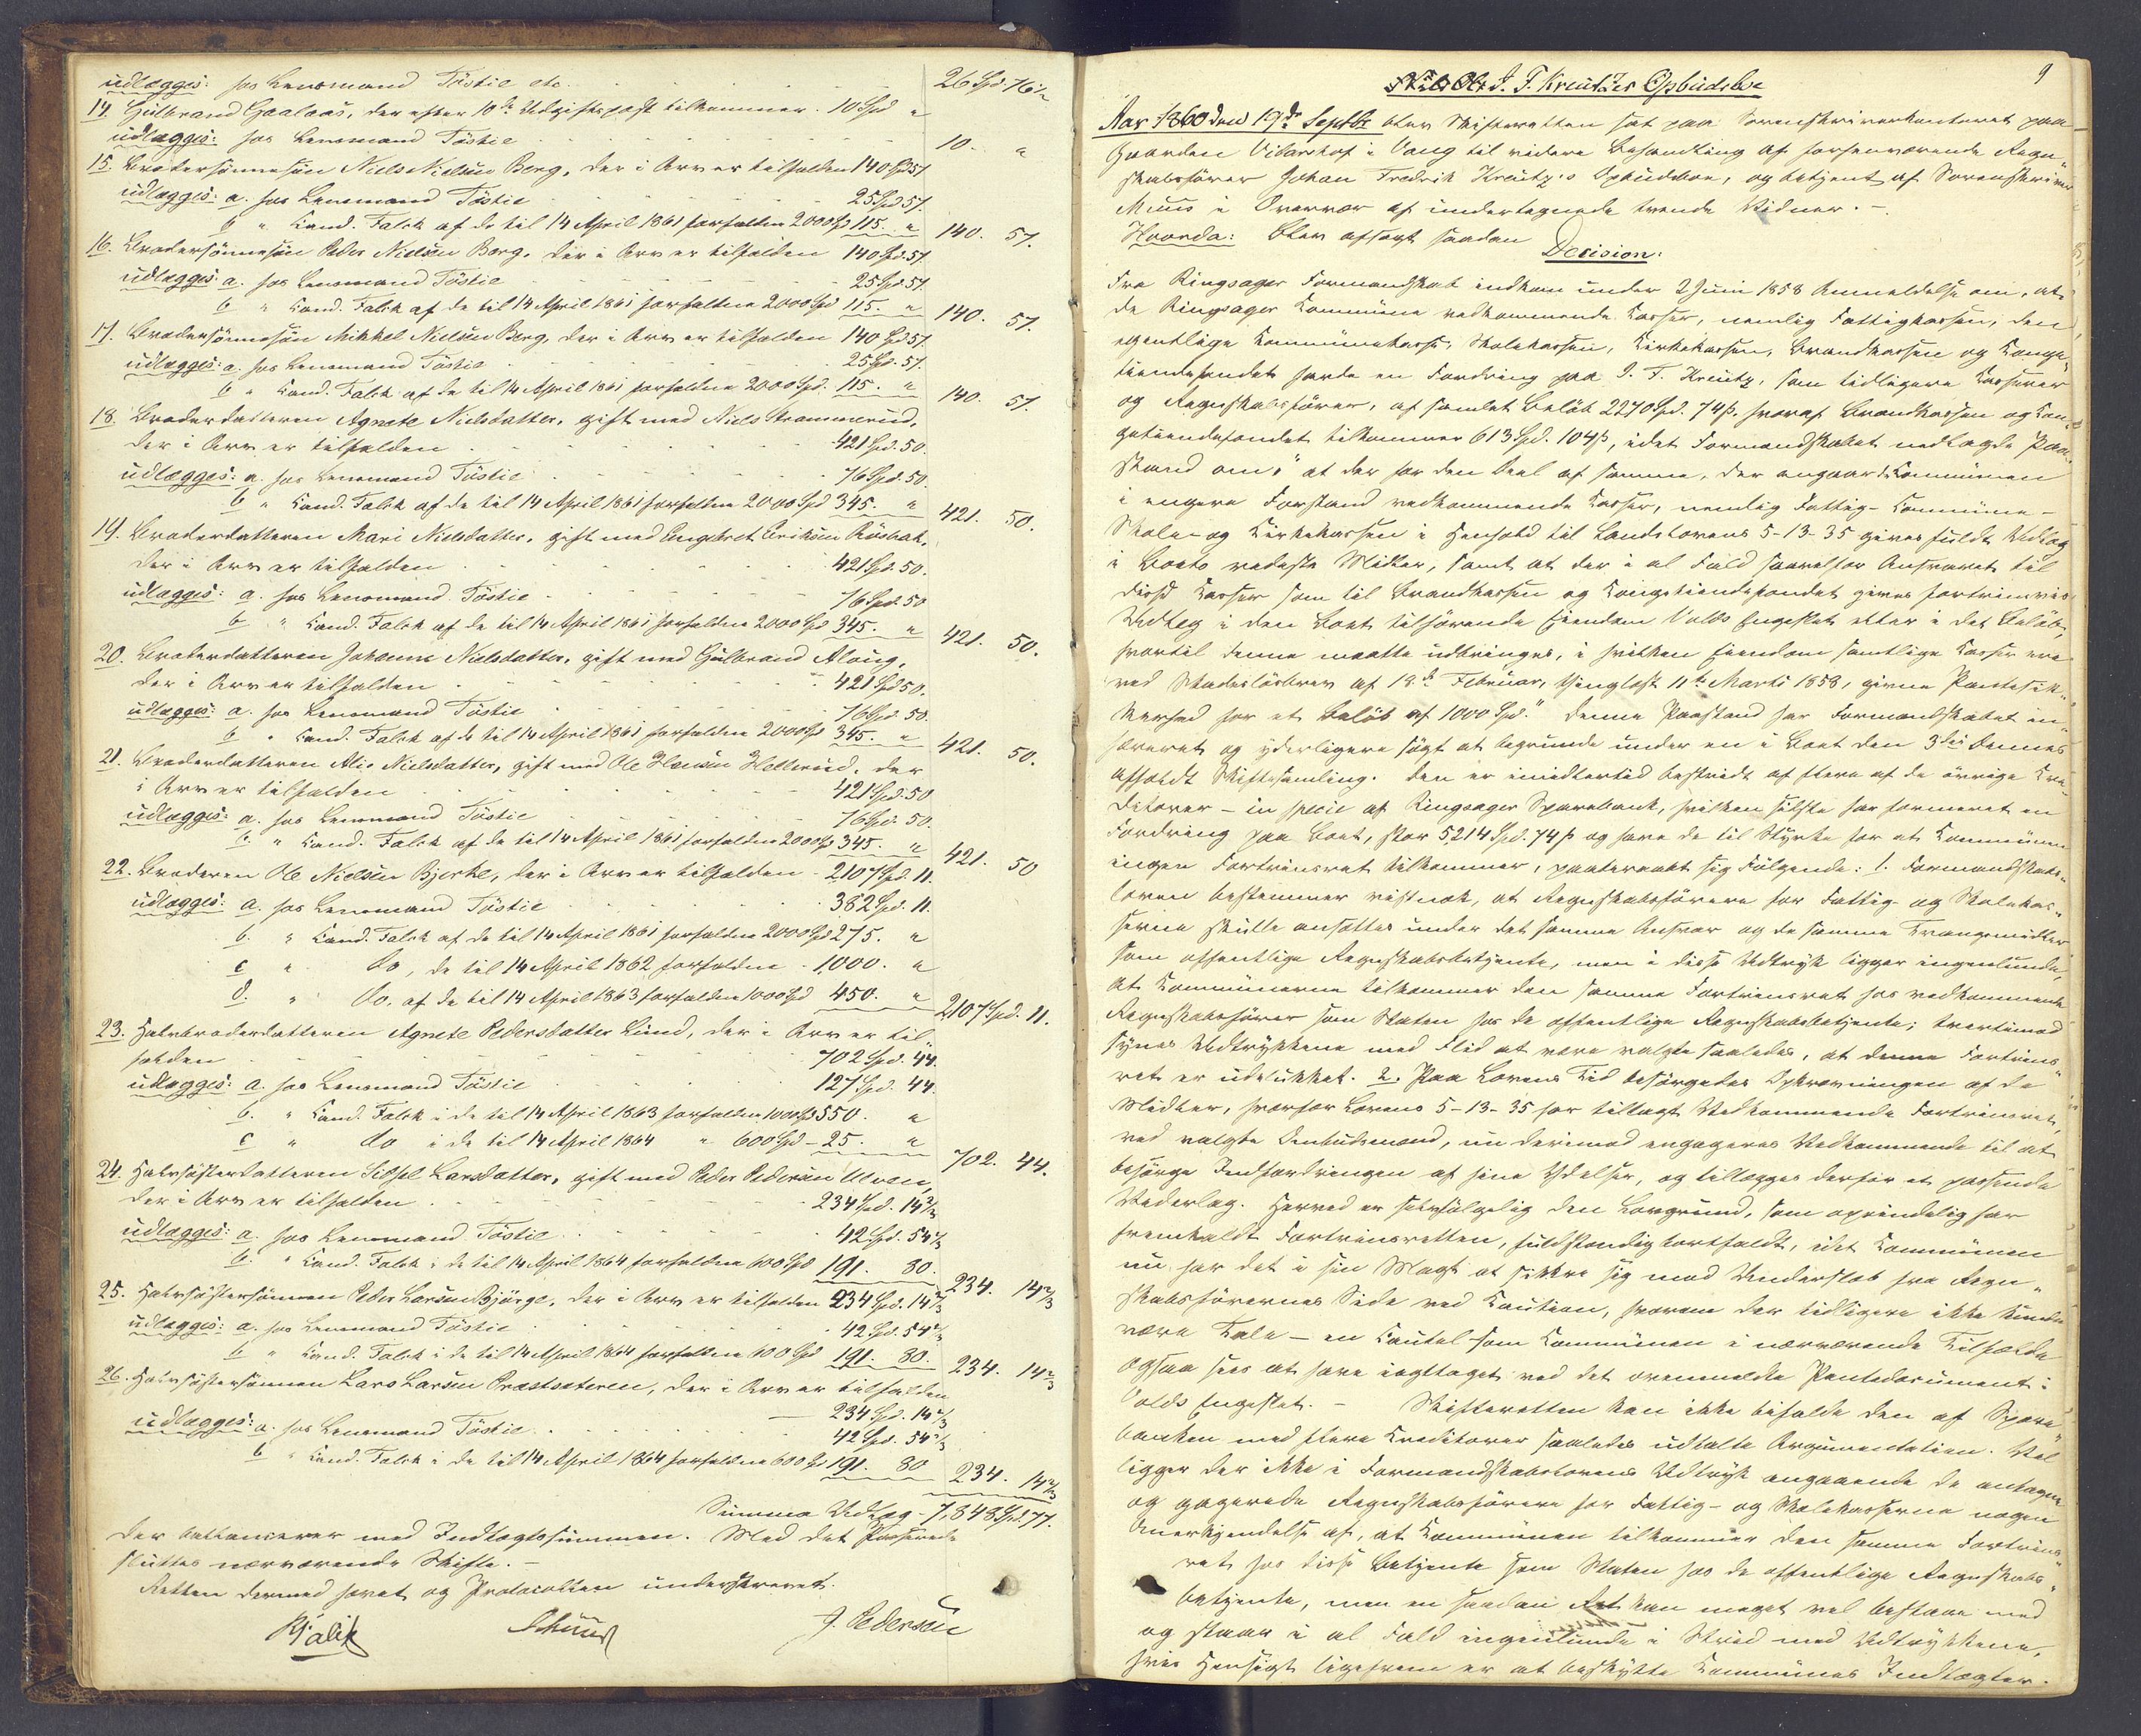 udlægges: hos Lensmand Töstie etc. 26 Spd. 76½
14. Gulbrand Gaalaas, der efter 10de Udgiftspost tilkommer 10 Spd "
udlægges: hos Lensmand Töstie 10. "
15. Brodersönnesön Niels Nielsen Berg, der i Arv er tilfalden 140 Spd 57
udlægges: a. hos Lensmand Töstie 25 Spd 57.
b " Cand. Falck af de til 14 April 1861 forfaldne 2000 Spd 115. " 140. 57.
16. Brodersönnesön Peder Nielsen Berg, der i Arv er tilfalden 140 Spd. 57
udlægges: a. hos Lensmand Töstie 25 Spd 57
b " Cand. Falck af de til 14 April 1861 forfaldne 2000 Spd 115. " 140. 57.
17. Brodersönnesön Mikkel Nielsen Berg, der i Arv er tilfalden 140 Spd 57
udlægges: a. hos Lensmand Töstie 25 Spd. 57.
b " Cand. Falck af de til 14 April 1861 forfaldne 2000 Spd. 115. " 140. 57.
18. Broderdatteren Agnete Nielsdatter, gift med Niels Strammerud,
der i Arv er tilfalden 421 Spd. 50.
udlægges: a. hos Lensmand Töstie 76 Spd. 50.
b " Cand. Falck af de til 14 April 1861 forfaldne 2000 Spd 345. " 421. 50.
19. Broderdatteren Mari Nielsdatter, gift med Engebret Eriksen
der i Arv er tilfalden 421 Spd. 50.
udlægges: a. hos Lensmand Töstie 76 Spd. 50
b " Cand. Falck af de til 14 April 1861 forfaldne 2000 Spd 345. " 421. 50.
20. Broderdatteren Johanne Nielsdatter, gift med Gulbrand Aloug,
der i Arv er tilfalden 421 Spd 50.
udlægges: a. hos Lensmand Töstie 76 Spd. 50.
b " Cand. Falck af de til 14 April 1861 forfaldne 2000 Spd 345. " 421. 50.
21. Broderdatteren Alis Nielsdatter, gift med Ole Hansen Hellerud, der
i Arv er tilfalden 421 Spd. 50
udlægges: a. hos Lensmand Töstie 76 Spd. 50.
b. " Cand. Falck af de til 14 April 1861 forfaldne 2000 Spd 345. " 421. 50
22. Broderen Ole Nielsen Bjerke, der i Arv er tilfalden 2107 Spd. 11.
udlægges: a. hos Lensmand Töstie 382 Spd. 11.
b. " Cand. Falck af de til 14 April 1861 forfaldne 2000 Spd 275. "
c " do, de til 14 April 1862 forfaldne 1,000. "
d. " do. af de til 14 April 1863 forfaldne 1000 Spd 450. " 2107 Spd. 11.
23. Halvbroderdatteren Agnete Pedersdatter Lund, der i Arv er til-
falden 702 Spd. 44.
udlægges: a. hos Lensmand Töstie 127 Spd. 44.
b. " Cand. Falck i de til 14 April 1863 forfaldne 1000 Spd 550. "
c " do i de til 14 April 1864 " 600 Spd - 25. " 702. 44.
24. Halvsösterdatteren Sidsel Larsdatter, gift med Peder Pedersen Ulven,
der i Arv er tilfalden 234 Spd. 14⅔
udlægges: a. hos Lensmand Töstie 42 Spd. 54⅔
b. " Cand. Falck i de til 14 April 1864 forfaldne 600 Spd 191. 80. 234. 14⅔
25. Halvsöstersönnen Peder Larsen Björge, der i Arv er tilfalden 234 Spd. 14⅔
udlægges: a. hos Lensmand Töstie 42 Spd. 54⅔
b " Cand. Falck i de til 14 April 1864 forfaldne 600 Spd 191. 80. 234. 14⅔
26. Halvsöstersönnen Lars Larsen Præstsæteren, der i Arv er tilfalden
234 Spd. 14⅔
udlægges: a. hos Lensmand Töstie 42 Spd. 54⅔
b " Cand. Falck i de til 14 April 1864 forfaldne 600 Spd 191. 80 234. 14⅔
Summa Udlæg - 7,848 Spd. 77.
der ballancerer med Indtægtssummen. Med det Passerede
sluttes nærværende Skifte. -
Retten dermed hævet og Protocollen underskrevet.
J. Pedersen
9
J. F. Kreutzes Opbudsboe
Aar 1860 den 19de Septbr blev Skifteretten sat paa Sorenskriverkontoret paa
Gaarden Vidarshof i Vang til videre Behandling af forhenværende Regn-
skabsförer Johan Fredrik Kreutz's Opbudsboe, og betjent af Sorenskriver
Muus i Overvær af undertegnede tvende Vidner. -
Hvorda: blev afsagt saadan
Decision:
Fra Ringsager Formandskab indkom under 2 Juni 1858 Anmeldelse om, at
de Ringsager Kommune vedkommende Kasser, nemlig Fattigkassen, den
egentlige Kommunekasse, Skolekassen, Kirkekassen, Brandkassen og Konge-
tiendefondet havde en Fordring paa J. F. Kreutz, som tidligere Kasserer
og Regnskabsförer, af samlet Belöb 2270 Spd. 74 s, hvoraf Brandkassen og Kon-
getiendefondet tilkommer 613 Spd. 104 s, idet Formandskabet nedlagde Paa-
stand om, "at der for den Deel af samme, der angaar de Kommunen
i engere Forstand vedkommende Kasser, nemlig Fattig- Kommune-
Skole- og Kirkekassen i Henhold til Landslovens 5-13-35 gives fuldt Udlæg
i Boets rede Midler, samt at der i al Fald saavelfor Ansvaret til
disse Kasser som til Brandkassen og Kongetiendefondet gives fortrinsvis
Udlæg i den Boet tilhörende Eiendom Volds Engeslet efter i det Belöb,
hvortil denne maatte udbringes, i hvilken Eiendom samtlige Kasser ere
ved Skadeslösbrev af 18de Februar, thinglæst 11te Marts 1858, givne Pantesik-
kerhed for et Belöb af 1000 Spd." Denne Paastand har Formandskabet in-
hæreret og yderligere sögt at begrunde under en i Boet den 3die dennes
afholdt Skiftesamling. Den er imidlertid bestridt af flere af de övrige Kre-
ditorer - in specie af Ringsager Sparebank, hvilken sidste har formeret en
Fordring paa Boet, stor 5214 Spd. 74 s og have de til Styrke for at Kommunen
ingen Fortrinsret tilkommer, paaberaabt sig Fölgende: 1. Formandskabs-
loven bestemmer vistnok, at Regnskabsförere for Fattig- og Skolekas-
serne skulle ansættes under det samme Ansvar og de samme Tvangsmidler
som offentlige Regnskabsbetjente, men i disse Udtryk ligger ingenlunde,
at Kommunerne tilkommer den samme Fortrinsret hos vedkommende
Regnskabsförer som Staten hos de offentlige Regnskabsbetjente; tvertimod
synes Udtrykkene med Flid at være valgte saaledes, at denne Fortrins-
ret er udelukket. 2. Paa Lovens Tid besörgedes Opkrævningen af de
Midler, hvorfor Lovens 5-13-35 har tillagt Vedkommende Fortrinsret,
ved valgte Ombudsmænd, nu derimod engageres Vedkommende til at
besörge Indfordringen af sine Ydelser, og tillægges derfor et passende
Vederlag. Herved er selvfölgelig den Lovgrund, som oprindelig har
fremkaldt Fortrinsretten, fuldstændig bortfaldt, idet Kommunen
nu har det i sin Magt at sikkre sig mod Underslæb fra Regn-
skabsförernes Side ved Caution, hvorom der tidligere ikke kunde
være Tale - en Cautel som Kommunen i nærværende Tilfælde
ogsaa sees at have iagttaget ved det ovenmeldte Pantedocument i
Volds Engeslet. - Skifteretten kan ikke bifalde den af Spare-
banken med flere Creditorer saaledes udtalte Argumentation. Vel
ligger der ikke i Formandskabslovens Udtryk angaaende de antagne
og gagerede Regnskabsförere for Fattig- og Skolekasserne nogen
Anerkjendelse af, at Kommunen tilkommer den samme Fortrins-
ret hos disse Betjente som Staten hos de offentlige Regnskabs-
betjente, men en saadan Ret kan meget vel bestaae med
og staar i al Fald ingenlunde i Strid med Udtrykkene,
hvis Hensigt ligefrem er at beskytte Kommunens Indtægter.